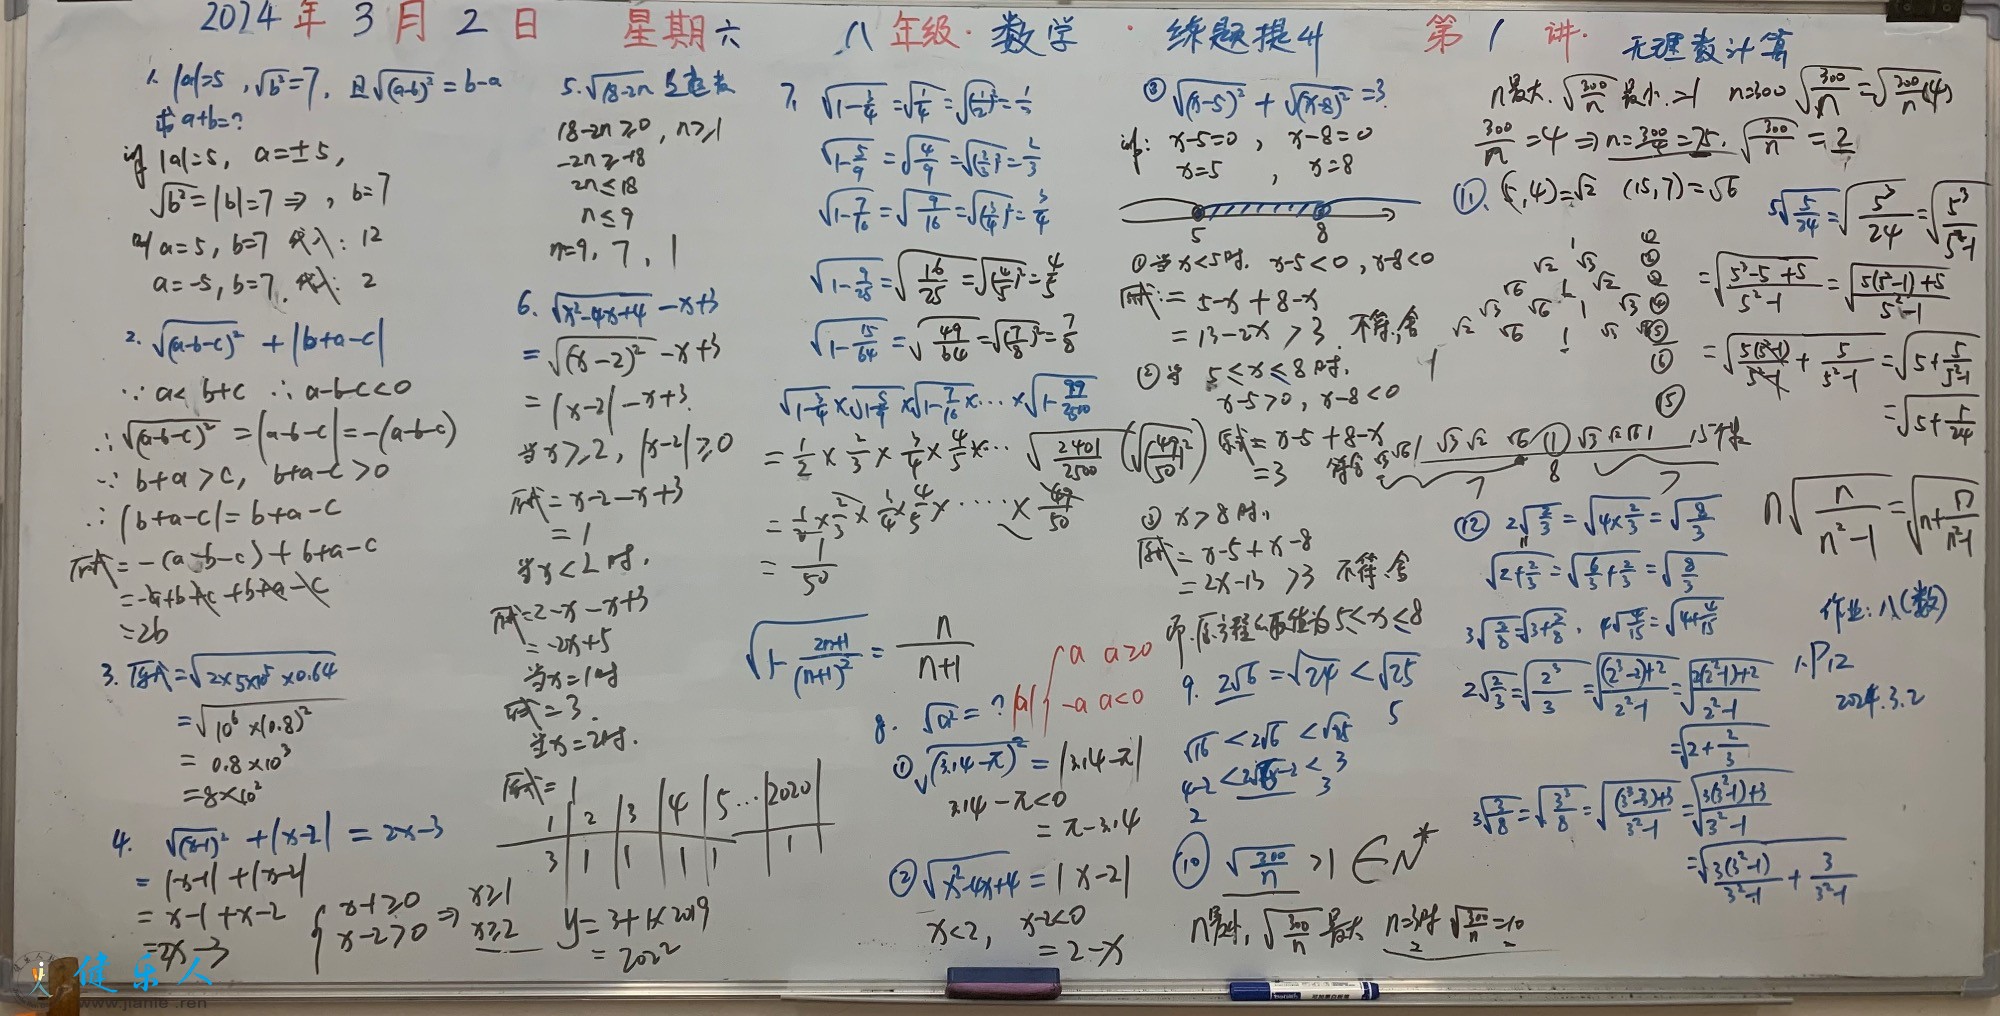 2024年3月2日 星期六 八年级·数学·练题提升 第1讲· 无理数计算
1. |a|=5, √b²=7, 且√(a-b)²=b-a
求a+b=?
|a|=5, a=±5,
√b²=|b|=7 ⇒, b=7
a=5, b=7 代入: 12
a=-5, b=7, 代入: 2
2. √(a-b-c)² + |b+a-c|
∵ a< b+c ∴ a-b-c<0
∴ √(a-b-c)² = |a-b-c| = -(a-b-c)
∵ b+a>c, b+a-c>0
∴ |b+a-c| = b+a-c
原式 = -(a-b-c) + b+a-c
= -a+b+c+b+a-c
= 2b
3. 原式 = √(2×5×10⁵×0.64)
= √(10⁶×(0.8)²)
= 0.8×10³
= 8×10²
4. √(x-1)² + |x-2| = 2x-3
= |x-1| + |x-2|
= x-1+x-2
= 2x-3
{ x-1≥0 x-2>0 ⇒ x≥1 x≥2
5. √(18-2n) 是整数
18-2n≥0, n≥1
-2n≥-18
2n≤18
n≤9
n=9, 7, 1
6. √(x²-4x+4) -x+3
= √(x-2)² -x+3
= |x-2| -x+3
当x≥2, |x-2|≥0
原式 = x-2-x+3
= 1
当x<2时,
原式=2-x-x+3
= -2x+5
当x=1时
原式=3.
当x=2时.
原式=1
1 | 2 | 3 | 4 | 5 … | 2020
3 | 1 | 1 | 1 | 1 | 1
y=3+1×2019
= 2022
7. √(1-3/4) = √(1/4) = √(1/2)² = 1/2
√(1-5/9) = √(4/9) = √(2/3)² = 2/3
√(1-7/16) = √(9/16) = √(3/4)² = 3/4
√(1-9/25) = √(16/25) = √(4/5)² = 4/5
√(1-15/64) = √(49/64) = √(7/8)² = 7/8
√(1-3/4) × √(1-5/9) × √(1-7/16) × … × √(1-99/2500)
= 1/2 × 2/3 × 3/4 × 4/5 × … √(2401/2500) (√(49/50)²)
= 1/2 × 2/3 × 3/4 × 4/5 × …… × 49/50
= 1/50
√(1-(2n+1)/(n+1)²) = n/(n+1)
8. √a²=? |a| { a a≥0 -a a<0
① √(3.14-π)² = |3.14-π|
3.14-π<0
= π-3.14
② √(x²-4x+4) = |x-2|
x<2, x-2<0
= 2-x
③ √(x-5)² + √(x-8)² = 3
x-5=0, x-8=0
x=5, x=8
5 8
① 当x<5时, x-5<0, x-8<0
原式: = 5-x+8-x
= 13-2x >3 不符,舍
② 当 5≤x≤8时,
x-5>0, x-8<0
原式 = x-5+8-x
=3 符合
③ x>8时,
原式 = x-5+x-8
= 2x-13 >3 不符,舍
5≤x≤8
9. 2√6=√24<√25
5
√16 < 2√6 < √25
4-2 < 2√6-2 < 3
2 3
⑩ √(300/n) >1 ∈N*
n最小, √(300/n) 最大 n=3时 √(300/n)=10
n最大. √(300/n) 最小=1 n=300 √(300/n) = √(300/n) (4)
300/n = 4 ⇒ n=300/4=75. √(300/n) = 2
⑪. (5,4)=√2 (15,7)=√6
1 ①
√2 √3 ②
√6 1 √2 ③
√3 √6 1 √3 ④
√2 √6 1 √3 √2 ⑤
⑥
1 ⑮
√3 √2 √6 ① √3 √2 √6 1 15个数
7 8 7
⑫ 2√(2/3) = √(4×2/3) = √(8/3)
√(2+2/3) = √(6/3+2/3) = √(8/3)
3√(3/8)=√(3+3/8), 4√(4/15)=√(4+4/15)
2√(2/3) = √(2³/3) = √(((2³-2)+2)/(2²-1)) = √((2(2²-1)+2)/(2²-1))
= √(2+2/3)
3√(3/8) = √(3³/8) = √(((3³-3)+3)/(3²-1)) = √((3(3²-1)+3)/(3²-1))
= √(3(3²-1)/(3²-1) + 3/(3²-1))
5√(5/24) = √(5³/24) = √(5³/(5²-1))
= √((5³-5+5)/(5²-1)) = √((5(5²-1)+5)/(5²-1))
= √(5(5²-1)/(5²-1) + 5/(5²-1)) = √(5+5/(5²-1))
= √(5+5/24)
n√(n/(n²-1)) = √(n+n/(n²-1))
作业: 八(数)
1. P12
2024.3.2
健乐人
www.jianle.ren